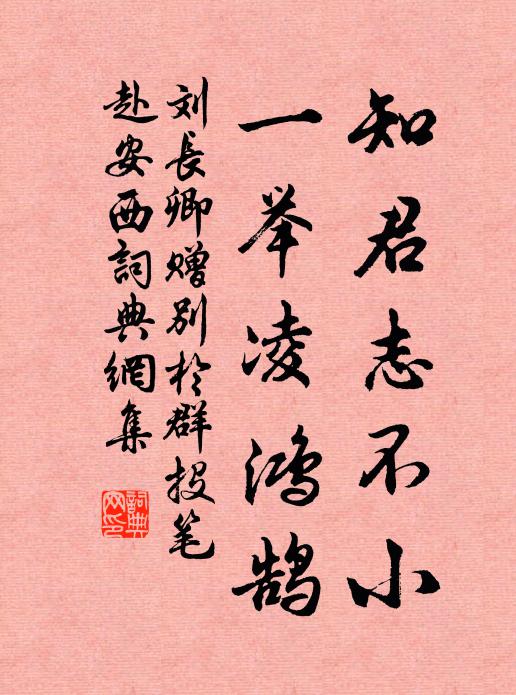 知君志不小
一举凌鸿鹄
刘長卿赠别於群投笔
赴安西詞典網集
詞典
网印